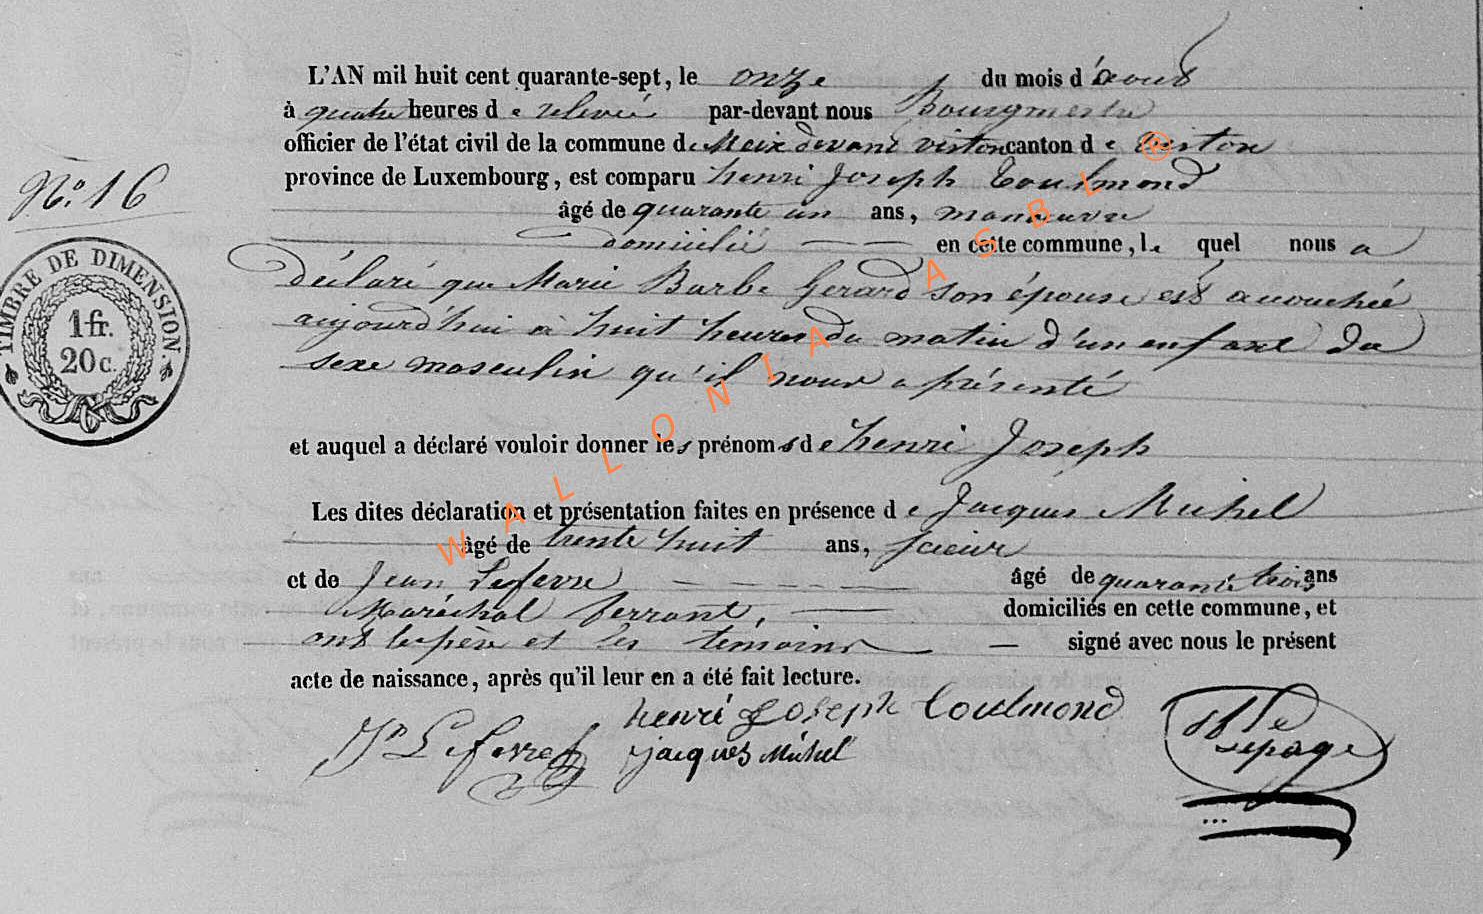 L'AN mil huit cent quarante-sept, le onze du mois d'aout
à quatre heures de relevée par-devant nous Bourgmestre
officier de l'état civil de la commune de Meix devant virton canton de Virton
province de Luxembourg, est comparu henri Joseph Toulmond
N.o 16
âgé de quarante un ans, manœuvre
domicilié en cette commune, le quel nous a
déclaré que Marie Barbe Gerard son épouse est accouchée
aujourd'hui à huit heures du matin d'un enfant du
sexe masculin qu'il nous a présenté
TIMBRE DE DIMENSION.
1 fr.
20 c.
et auquel a déclaré vouloir donner les prénoms de henri Joseph
Les dites déclaration et présentation faites en présence de Jacques Michel
âgé de trente huit ans, scieur
et de Jean Lefevre âgé de quarante trois ans
Maréchal ferrant, domiciliés en cette commune, et
ont le père et les temoins signé avec nous le présent
acte de naissance, après qu'il leur en a été fait lecture.
henri Joseph Toulmond
Jn Lefevre jacques Michel
Lepage
WALLONIA ASBL ®